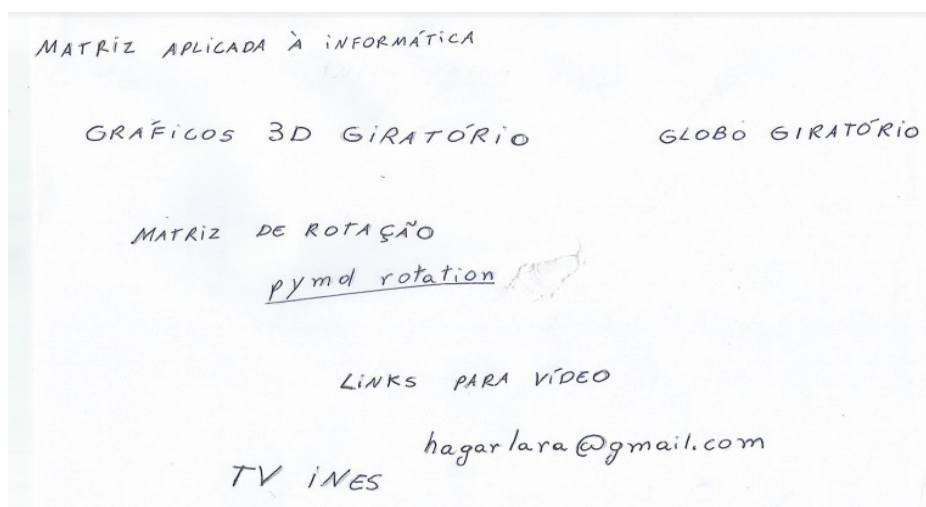 MATRIZ APLICADA À INFORMÁTICA
GRÁFICOS 3D GIRATÓRIO GLOBO GIRATÓRIO
MATRIZ DE ROTAÇÃO
pymol rotation
LINKS PARA VÍDEO
hagarlara@gmail.com
TV INES